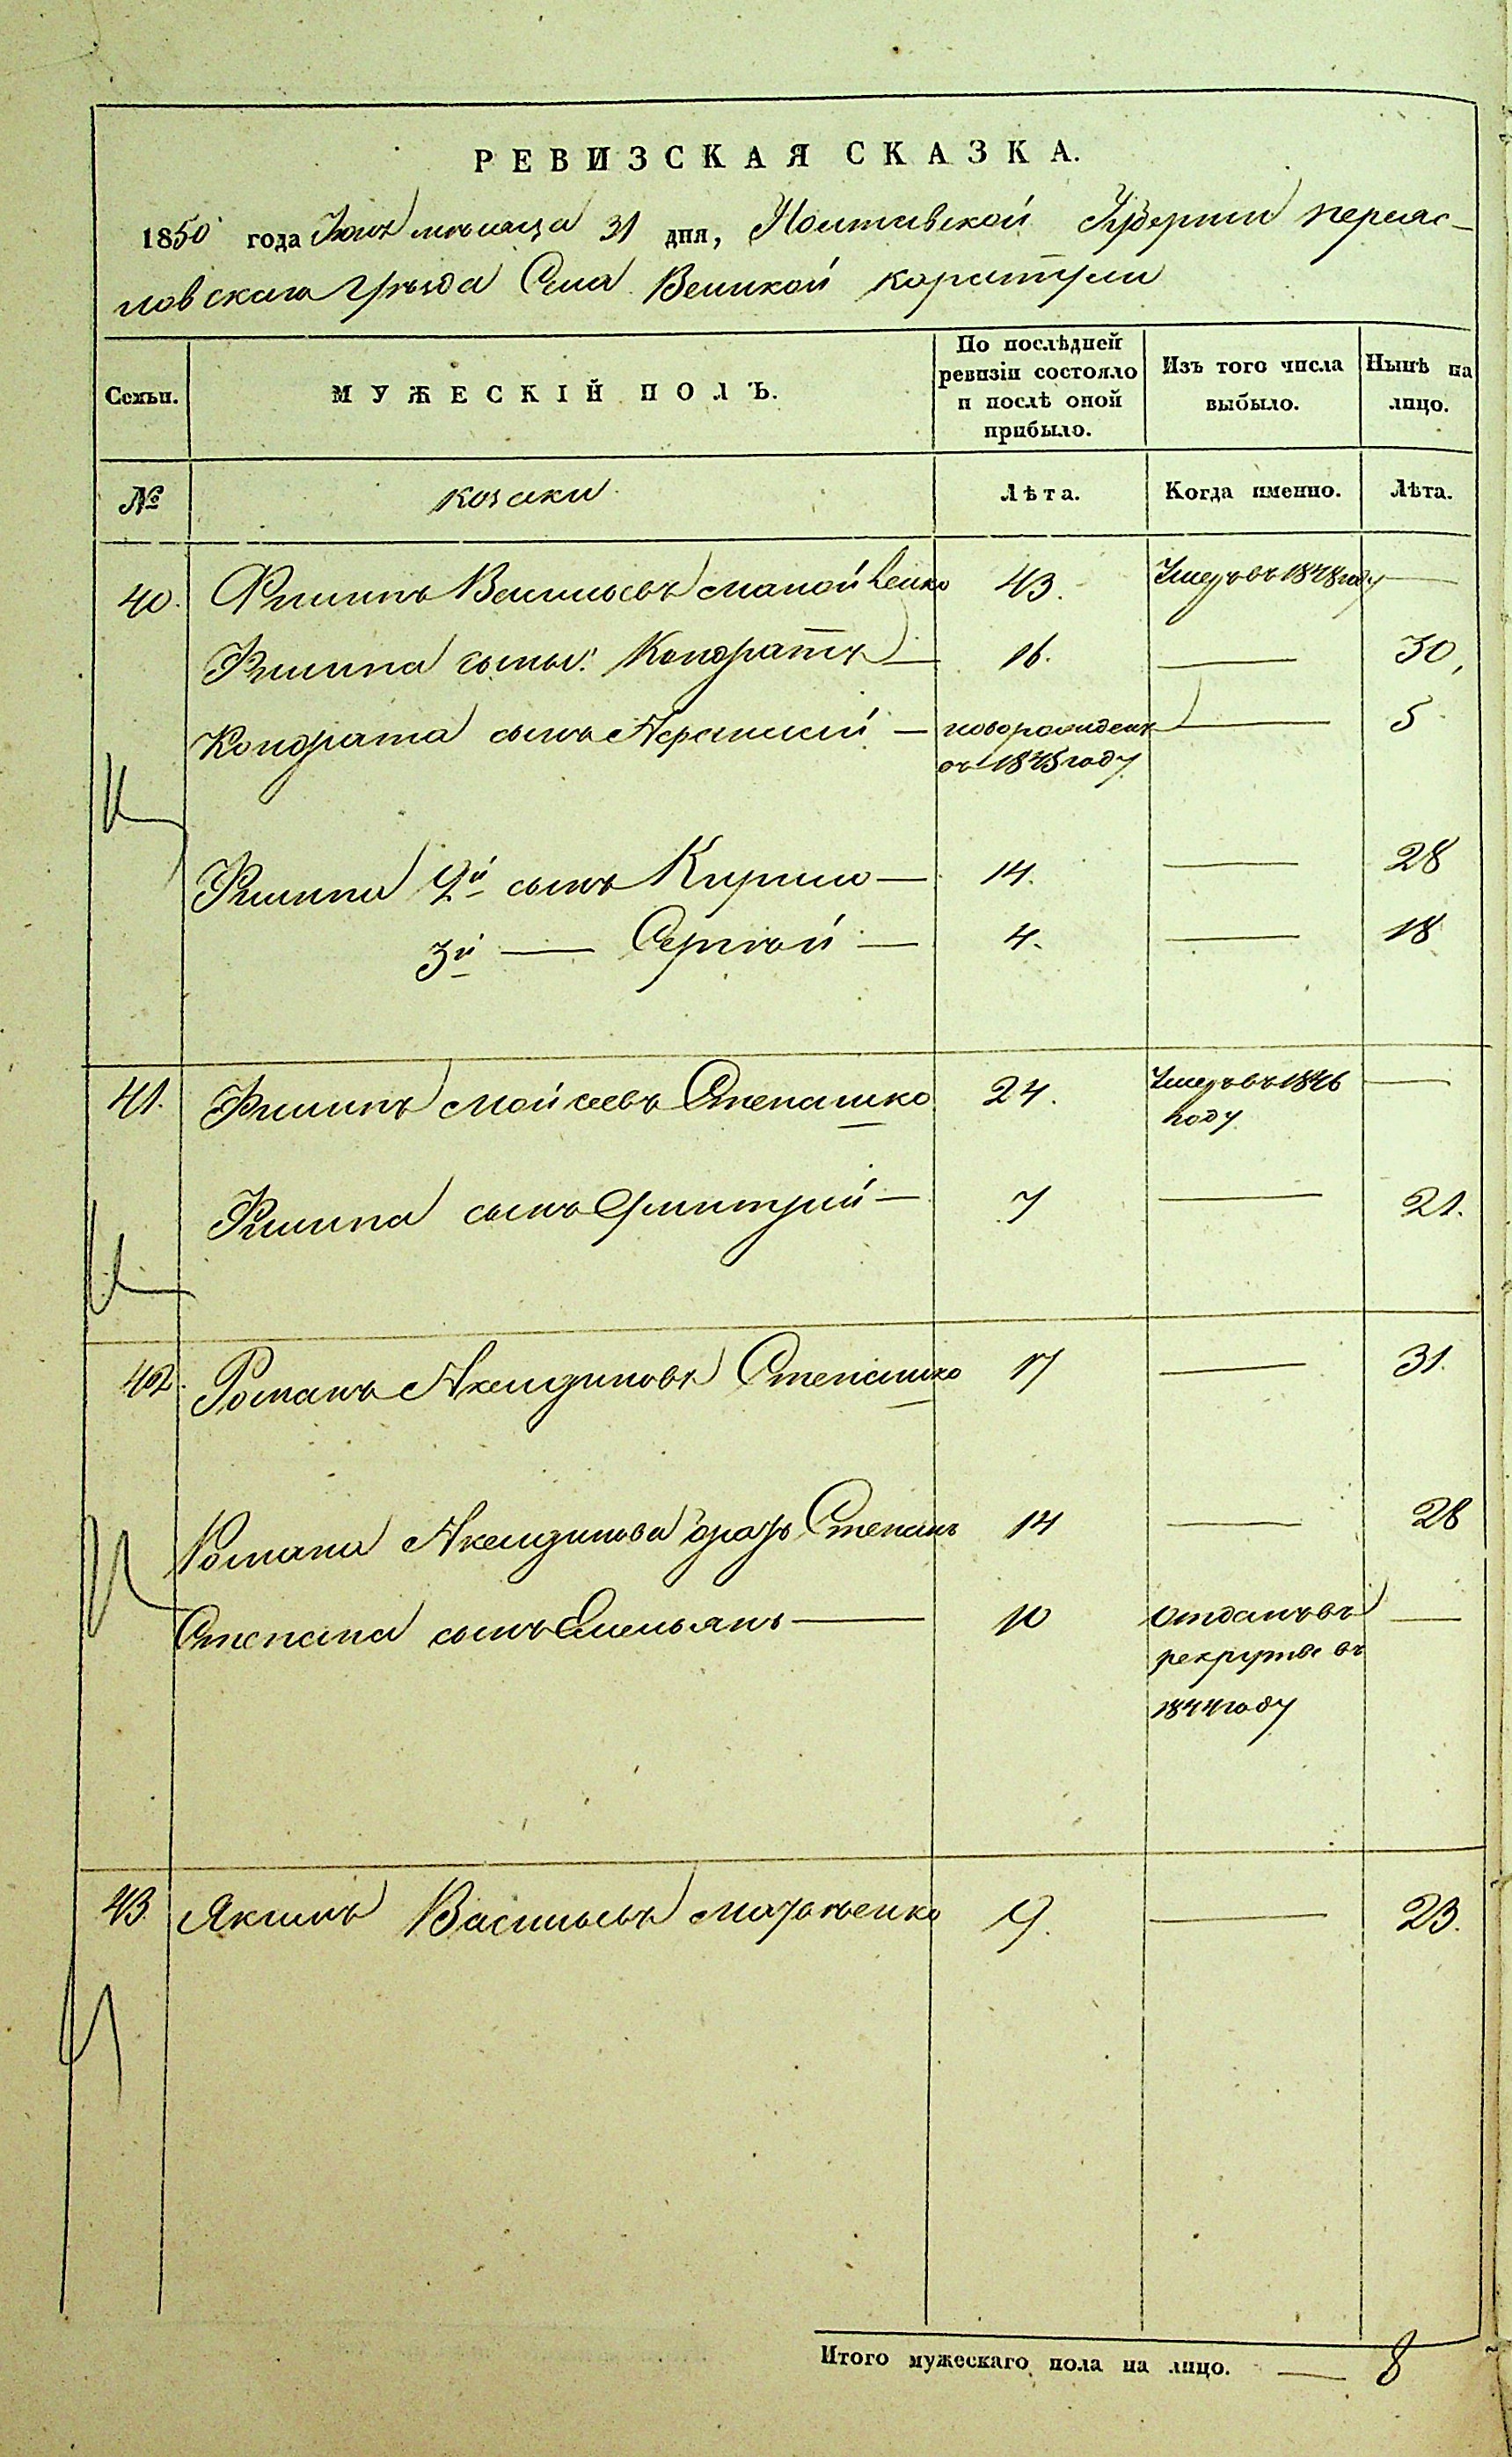 РЕВИЗСКАЯ СКАЗКА.
1850 года Июля месяца 31 дня, Полтавской Губернии переяс-
лавскаго уезда Села Великой каратули
Семьи.
МУЖЕСКІЙ ПОЛЪ.
По послѣдней ревизіи состояло и послѣ оной прибыло.
Изъ того числа выбыло.
Нынѣ на лицо.
№ козаки Лѣта. Когда именно. Лѣта.
40. Филипъ Васильевъ 43. Умеръ въ 1848 году —
Филипа сынъ: Кондратъ — 16. — 30,
Кондрата сынъ — новорожденъ — 5
въ 1845 году
Филипа 2й сынъ Кирило — 14. — 28
3й — Сергѣй — 4. — 18
41. Филипъ Мойсеевъ Степашко 24. Умеръ въ 1846 —
году
Филипа сынъ Дмитрій — 7 — 21.
42. Романъ Акендиновъ Степашко 17 — 31.
Романа Акендинова братъ Степанъ 14 — 28
Степана сынъ Емельянъ — 10 отданъ въ —
рекруты въ
1844 году
43. Якимъ Васильевъ 9. — 23.
Итого мужескаго пола на лицо. — 8